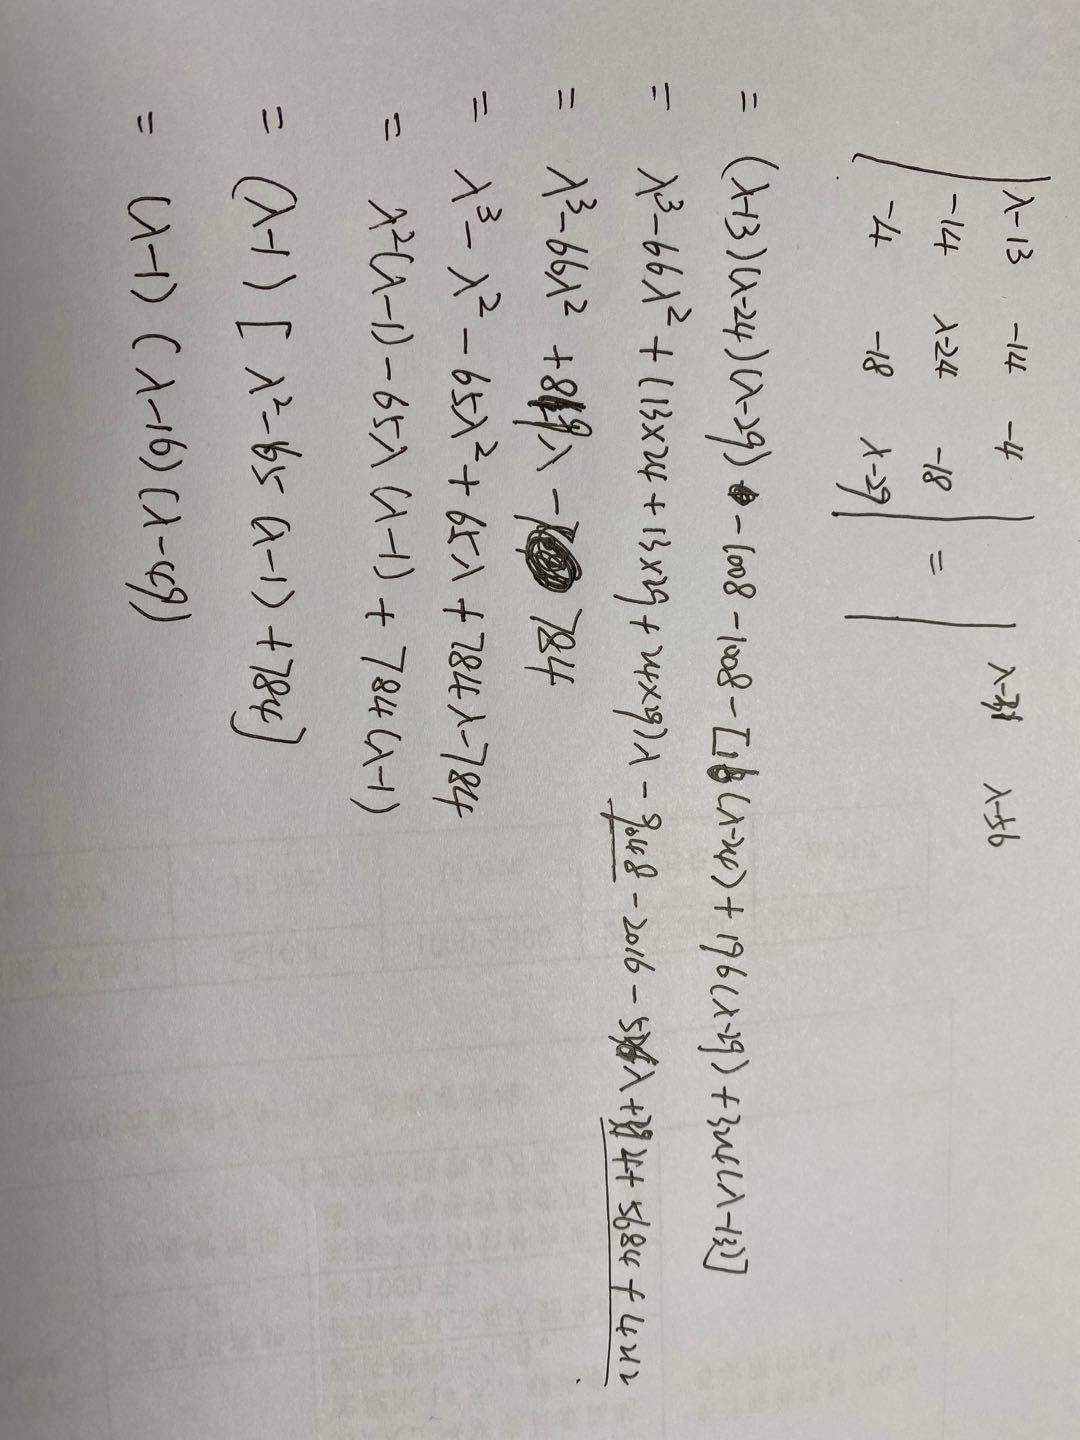 | λ-13 -14 -4 | λ-56
| -14 λ-24 -18 | = |
| -4 -18 λ-29 |
= (λ-13)(λ-24)(λ-29) -1008-1008-[16(λ-24)+196(λ-29)+324(λ-13)]
= λ³-66λ²+(13×24+13×29+24×29)λ-9048-2016-536λ+384+5684+4212
= λ³-66λ²+849λ-784
= λ³-λ²-65λ²+65λ+784λ-784
= λ²(λ-1)-65λ(λ-1)+784(λ-1)
= (λ-1)[λ²-65(λ-1)+784]
= (λ-1)(λ-16)(λ-49)